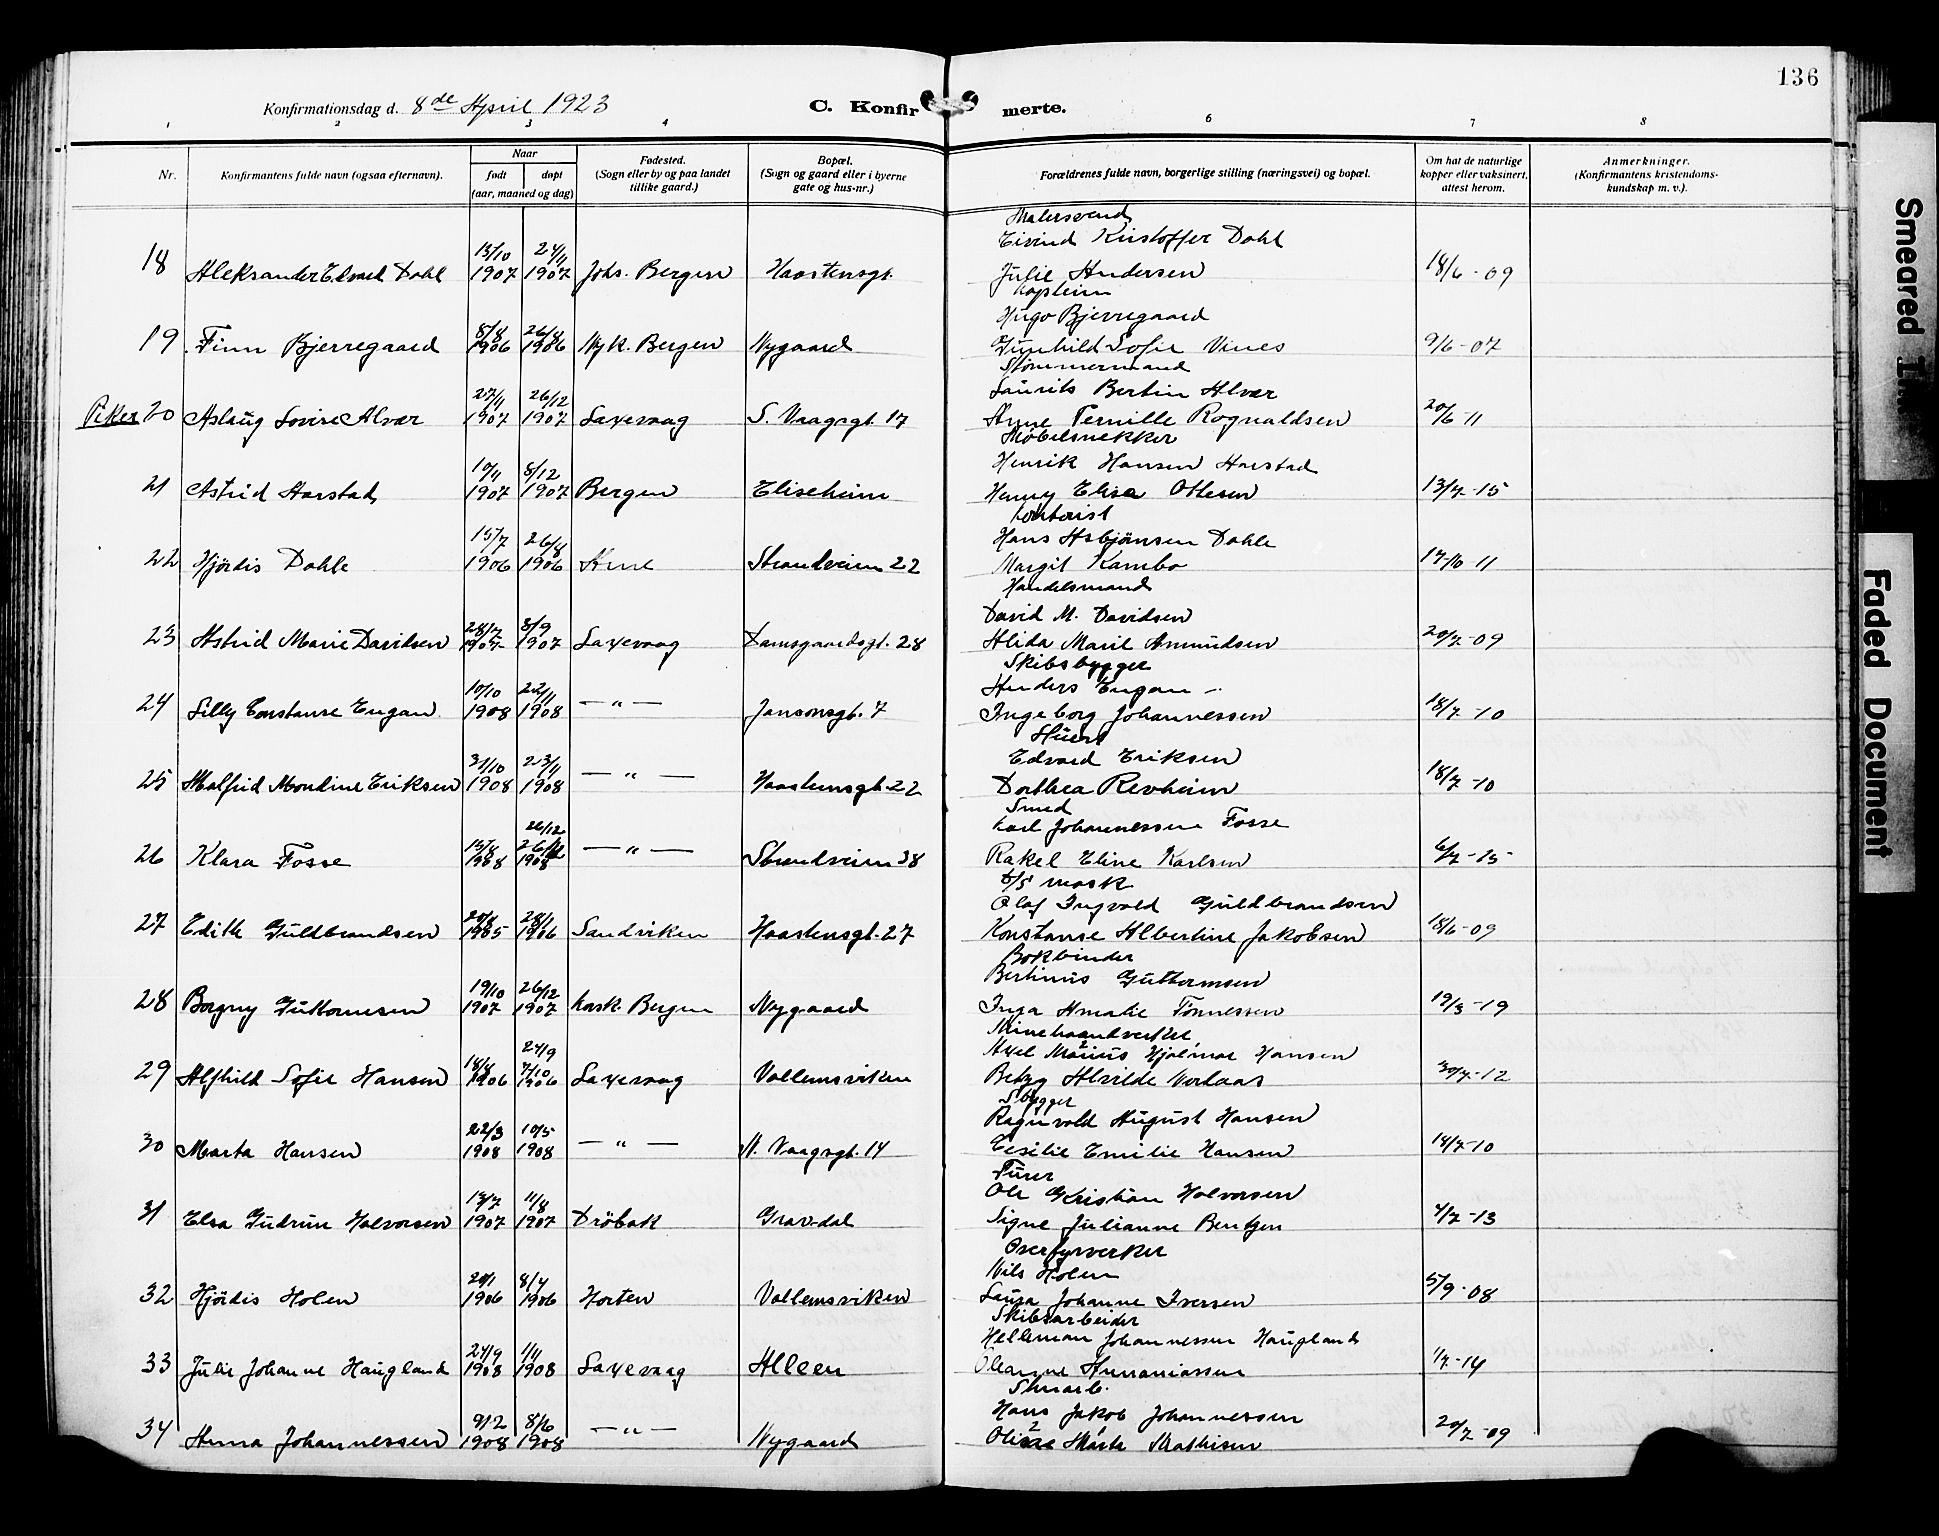 136
Konfirmationsdag d. 8de April 1923
C. Konfirmerte.
1 2 3 4 6 7 8
Nr.
Konfirmantens fulde navn (ogsaa efternavn).
Naar
født døpt
(aar, maaned og dag)
Fødested.
(Sogn eller by og paa landet
tillike gaard.)
Bopæl.
(Sogn og gaard eller i byerne
gate og hus-nr.)
Forældrenes fulde navn, borgerlige stilling (næringsvei) og bopæl.
Om hat de naturlige
kopper eller vaksinert,
attest herom.
Anmerkninger.
(Konfirmantens kristendoms-
kundskap m. v.).
Malersvend
13/10 24/11 Eivind Kristoffer Dahl
18 Aleksander Edvard Dahl 1907 1907 Johs. Bergen Haastensgt. Julie Andersen 18/6-09
Hugo Bjerregaard
8/4 26/4
19 Finn Bjerregaard 1906 1906 Nyk. Bergen Nygaard Gunhild Sofie Vines 9/6-07
Tømmermand
27/11 26/12 Laurits Bertin Alvær
Piker 20 Aslaug Lovise Alvær 1907 1907 Laxevaag S. Vaagsgt. 17 Anne Pernille Rognaldsen 20/6-11
Møbelsnekker
10/11 8/12 Henrik Hansen Harstad
21 Astrid Harstad 1907 1907 Bergen Eliseheim Henny Elise Ottesen 13/7-15
Kontorist
15/7 26/8 Hans Asbjørnsen Dahle
22 Hjördis Dahle 1906 1906 Strandveien 22 Margit Kambo 17/10-11
Handelsmand
28/7 8/9 David M. Davidsen
23 Astrid Marie Davidsen 1907 1907 Laxevaag Damsgaardsgt. 28 Alida Marie Amundsen 20/7-09
Skibsbygger
10/10 22/11 Anders Engan
24 Lilly Constanse Engan 1908 1908 — " — Jansonsgt. 7 Ingeborg Johannessen 18/7-10
31/10 23/11 Edvard Eriksen
25 Malfrid Mondine Eriksen 1908 1908 — " — Haastensgt. 22 Dorthea Revheim 18/7-10
Smed
26/12 Karl Johannessen Fosse
15/8 26/12
26 Klara Fosse 1908 1908 — " — Strandveien 38 Rakel Eline Karlsen 6/7-15
D/S mask
28/1 Olaf Ingvald Guldbrandsen
27 Edith Guldbrandsen 1905 1906 Sandviken Haastensgt. 27 Konstanse Albertine Jakobsen 18/6-09
Bokbinder
19/10 26/12 Bertinius Guttormsen
28 Borgny Guttormsen 1907 1907 Korsk. Bergen Nygaard Inga Amalie Tønnessen 19/3-19
Minehaandverker
24/9 Axel Marius Hjalmar Hansen
14/8 7/10
29 Alfhild Sofie Hansen 1906 1906 Laxevaag Vallemsviken Betzy Alvilde Vorlaas 30/7-12
S bygger
22/3 10/5 Ragnvald August Hansen
30 Marta Hansen 1908 1908 — " — N. Vaagsgt. 14 Cesilie Emilie Hansen 14/7-10
Furer
13/7 11/8 Ole Kristian Halvorsen
31 Elsa Gudrun Halvorsen 1907 1907 Dröbak Gravdal Signe Julianne Bentzen 4/7-13
Overfyrverker
29/1 8/4 Nils Holen
32 Hjördis Holen 1906 1906 Horten Vallemsviken Laura Johanne Iversen 5/9-08
Skibsarbeider
24/9 1/11 Helleman Johannessen Haugland
33 Julie Johanne Haugland 1908 1908 Laxevaag Alleen 1/7-14
9/2 8/6 Hans Jakob Johannessen
34 Anna Johannessen 1908 1908 — " — Nygaard Marte Mathisen 20/7-09
Smeared
Faded Document